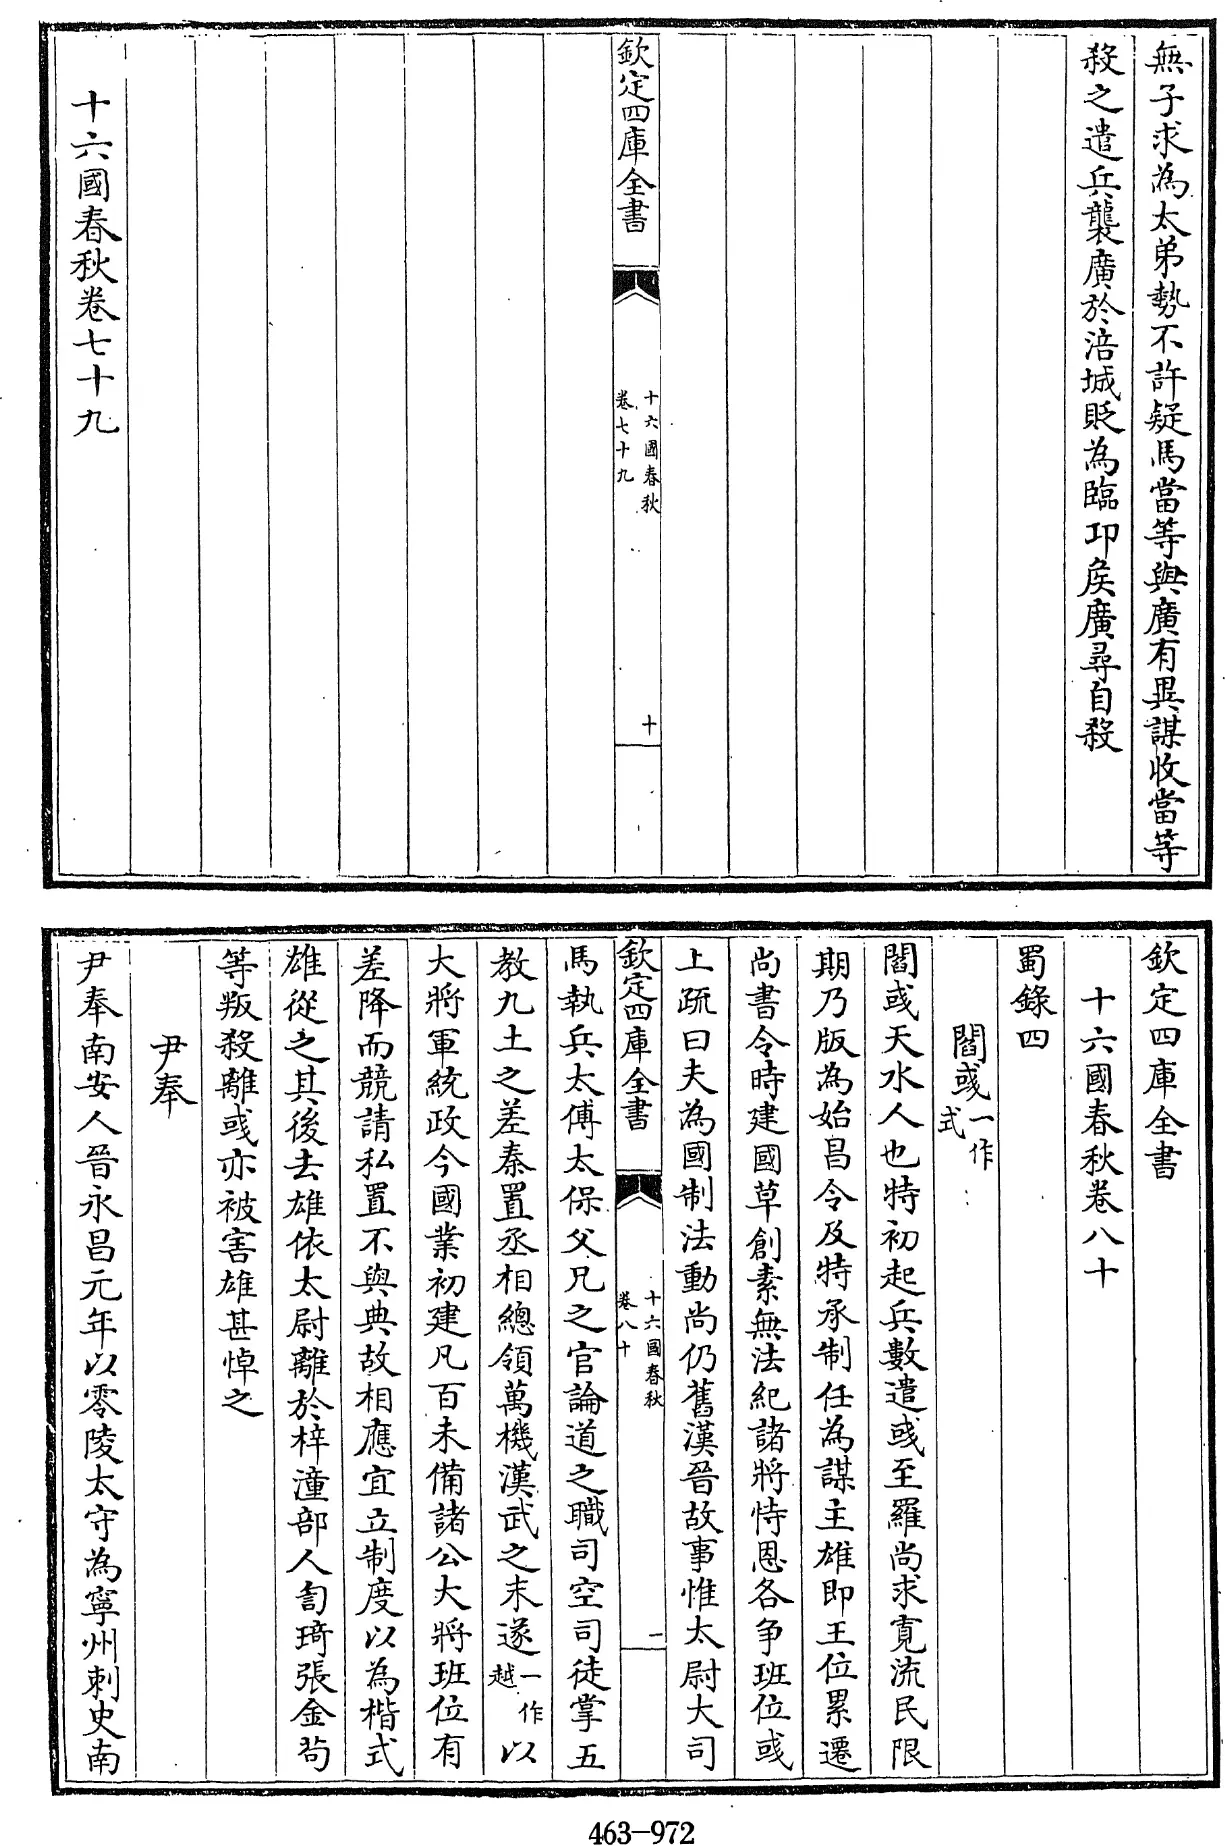 無子求為太弟勢不許疑馬當等與廣有異謀收當等
殺之遣兵襲廣於涪城貶為臨邛侯廣尋自殺
欽定四庫全書
十六國春秋
卷七十九
十
十六國春秋卷七十九
欽定四庫全書
十六國春秋卷八十
蜀錄四
閻彧一作式
閻彧天水人也特初起兵數遣彧至羅尚求寬流民限
期乃版為始昌令及特承制任為謀主雄即王位累遷
尚書令時建國草創素無法紀諸將恃恩各爭班位彧
上疏曰夫為國制法動尚仍舊漢晉故事惟太尉大司
欽定四庫全書
十六國春秋
卷八十
一
馬執兵太傅太保父兄之官論道之職司空司徒掌五
教九土之差秦置丞相總領萬機漢武之末遂一作越以
大將軍統政今國業初建凡百未備諸公大將班位有
差降而競請私置不與典故相應宜立制度以為楷式
雄從之其後去雄依太尉離於梓潼部人訇琦張金苟
等叛殺離彧亦被害雄甚悼之
尹奉
尹奉南安人晉永昌元年以零陵太守為寧州刺史南
463-972